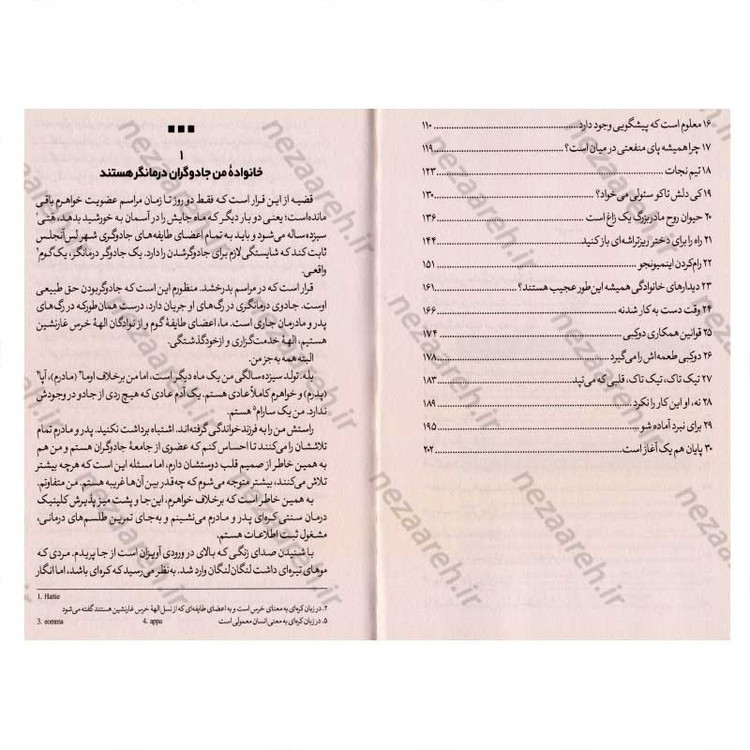 ۱۶ معلوم است که پیشگویی وجود دارد ۱۱۰
۱۷ چرا همیشه پای منفعتی در میان است؟ ۱۱۹
۱۸ تیم نجات ۱۲۳
۱۹ کی دلش تاکو سئولی می‌خواد؟ ۱۳۰
۲۰ حیوان روح مادربزرگ یک زاغ است ۱۳۶
۲۱ راه را برای دختر ریزتراشه‌ای باز کنید ۱۴۴
۲۲ رام‌کردن اینمیونجو ۱۵۱
۲۳ دیدارهای خانوادگی همیشه این‌طور عجیب هستند؟ ۱۶۱
۲۴ وقت دست به کار شدنه ۱۶۶
۲۵ قوانین همکاری دوکبی ۱۷۴
۲۶ دوکبی طعمه‌اش را می‌گیرد ۱۷۸
۲۷ تیک تاک، تیک تاک، قلبی که می‌تپد ۱۸۳
۲۸ نه، او این کار را نکرد ۱۸۹
۲۹ برای نبرد آماده شو ۱۹۵
۳۰ پایان هم یک آغاز است ۲۰۲
۱
خانوادهٔ من جادوگران درمانگر هستند
قضیه از این قرار است که فقط دو روز تا زمان مراسم عضویت خواهرم باقی
مانده است؛ یعنی دو بار دیگر که ماه جایش را در آسمان به خورشید بدهد، هتی۱
سیزده‌ساله می‌شود و باید به تمام اعضای طایفه‌های جادوگری شهر لس‌آنجلس
ثابت کند که شایستگی لازم برای جادوگرشدن را دارد. یک جادوگر درمانگر، یک گوم۲
واقعی.
قرار است که در مراسم بدرخشد. منظورم این است که جادوگربودن حق طبیعی
اوست. جادوی درمانگری در رگ‌های او جریان دارد، درست همان‌طورکه در رگ‌های
پدر و مادرمان جاری است. ما، اعضای طایفهٔ گوم و از نوادگان الههٔ خرس غارنشین
هستیم، الههٔ خدمت‌گزاری و ازخودگذشتگی.
البته همه به جز من.
بله. تولد سیزده‌سالگی من یک ماه دیگر است، اما من برخلاف اوما۳ (مادرم)، آپا۴
(پدرم) و خواهرم کاملاً عادی هستم. یک آدم عادی که هیچ ردی از جادو در وجودش
ندارد. من یک سارام۵ هستم.
راستش من را به فرزندخواندگی گرفته‌اند. اشتباه برداشت نکنید. پدر و مادرم تمام
تلاششان را می‌کنند تا احساس کنم که عضوی از جامعهٔ جادوگران هستم و من هم
به همین خاطر از صمیم قلب دوستشان دارم، اما مسئله این است که هرچه بیشتر
تلاش می‌کنند، بیشتر متوجه می‌شوم که چه‌قدر بین آن‌ها غریبه هستم. من متفاوتم.
به همین خاطر است که برخلاف خواهرم، این‌جا و پشت میز پذیرش کلینیک
درمان سنتی کره‌ای پدر و مادرم می‌نشینم و به‌جای تمرین طلسم‌های درمانی،
مشغول ثبت اطلاعات هستم.
با شنیدن صدای زنگی که بالای در ورودی آویزان است از جا پریدم. مردی که
موهای تیره‌ای داشت لنگان‌لنگان وارد شد. به نظر می‌رسید که کره‌ای باشد، اما انگار
1. Hattie
۲. در زبان کره‌ای به معنای خرس است و به اعضای طایفه‌ای که از نسل الههٔ خرس غارنشین هستند گفته می‌شود
3. eomma 4. appa ۵. در زبان کره‌ای به معنی انسان معمولی است
nezaareh.ir